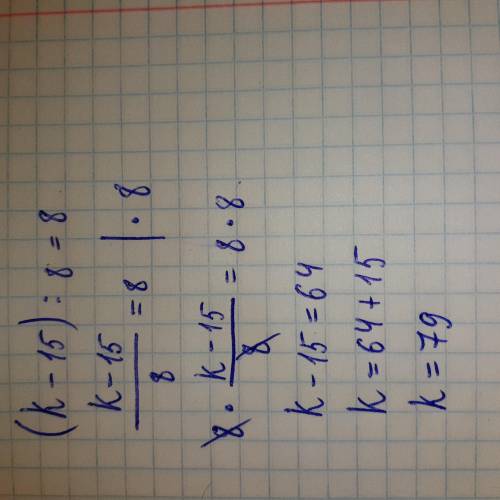 (k - 15) : 8 = 8
k - 15 / 8 = 8 | · 8
8 · k - 15 / 8 = 8 · 8
k - 15 = 64
k = 64 + 15
k = 79